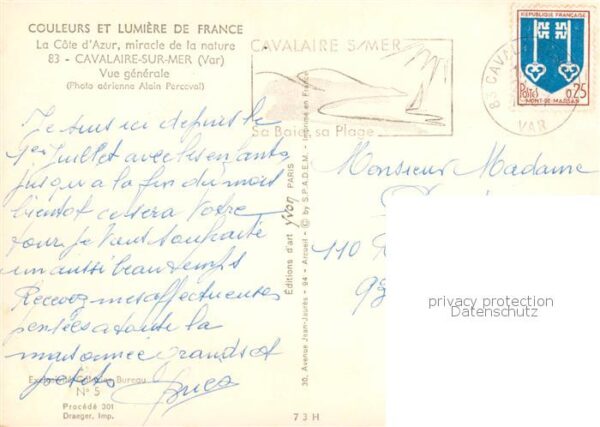 COULEURS ET LUMIÈRE DE FRANCE
La Côte d'Azur, miracle de la nature
83 - CAVALAIRE-SUR-MER (Var)
Vue générale
(Photo aérienne Alain Perceval)
Je suis ici depuis le
1er Juillet avec les enfants
jusqu'a la fin du mois
bientot ce sera Votre
tour je Vous souhaite
un aussi beau temps
Recevez mes affectueuses
pensées a toute la
maisonnée grands et
petits
Bureau
N° 5
Procédé 301
Draeger, Imp.
CAVALAIRE S/MER
Sa Baie, sa Plage
Éditions d'art Yvon PARIS
30, Avenue Jean-Jaurès - 94 - Arcueil - © by S.P.A.D.E.M. - Imprimé en France
73H
REPUBLIQUE FRANÇAISE
POSTES
0,25
MONT-DE-MARSAN
VAR
Monsieur Madame
110
privacy protection
Datenschutz